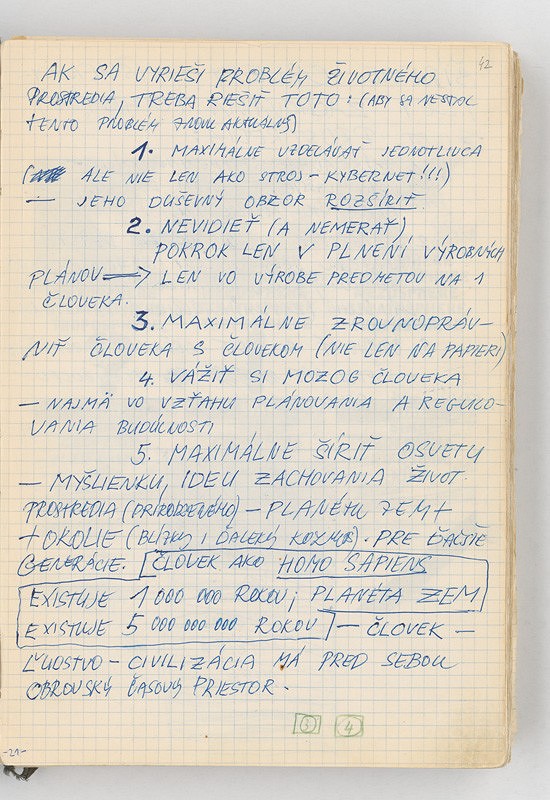 42
AK SA VYRIEŠI PROBLÉM ŽIVOTNÉHO
PROSTREDIA, TREBA RIEŠIŤ TOTO: (ABY SA NESTAL
TENTO PROBLÉM ZNOVU AKTUÁLNY)
1. MAXIMÁLNE VZDELÁVAŤ JEDNOTLIVCA
( ALE NIE LEN AKO STROJ – KYBERNET!!!)
— JEHO DUŠEVNÝ OBZOR ROZŠÍRIŤ
2. NEVIDIEŤ (A NEMERAŤ)
POKROK LEN V PLNENÍ VÝROBNÝCH
PLÁNOV ⟹ LEN VO VÝROBE PREDMETOV NA 1
ČLOVEKA.
3. MAXIMÁLNE ZROVNOPRÁV-
NIŤ ČLOVEKA S ČLOVEKOM (NIE LEN NA PAPIERI)
4. VÁŽIŤ SI MOZOG ČLOVEKA
— NAJMÄ VO VZŤAHU PLÁNOVANIA A REGULO-
VANIA BUDÚCNOSTI
5. MAXIMÁLNE ŠÍRIŤ OSVETU
— MYŠLIENKU, IDEU ZACHOVANIA ŽIVOT.
PROSTREDIA (PRIRODZENÉHO) – PLANÉTU ZEM +
+ OKOLIE (BLÍZKY I ĎALEKÝ KOZMOS). PRE ĎALŠIE
GENERÁCIE. ČLOVEK AKO HOMO SAPIENS
EXISTUJE 1 000 000 ROKOV; PLANÉTA ZEM
EXISTUJE 5 000 000 000 ROKOV — ČLOVEK —
ĽUDSTVO – CIVILIZÁCIA MÁ PRED SEBOU
OBROVSKÝ ČASOVÝ PRIESTOR.
3 4
-21-